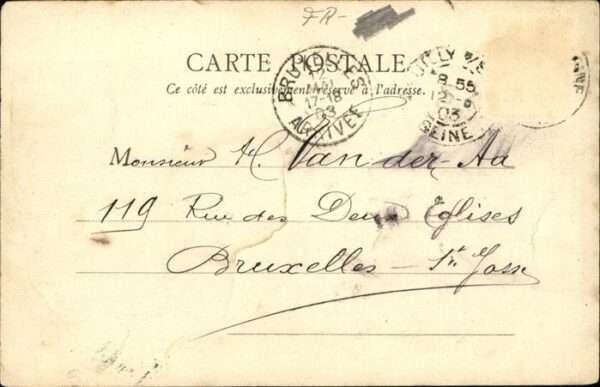 FR-
CARTE POSTALE
Ce côté est exclusivement réservé à l'adresse.
BRUXELLES
12
MAI
17-18
03
ARRIVÉE
8 55
12 -5
03
SEINE
Monsieur H. Van der Aa
119 Rue des Deux Eglises
Bruxelles - St. Josse